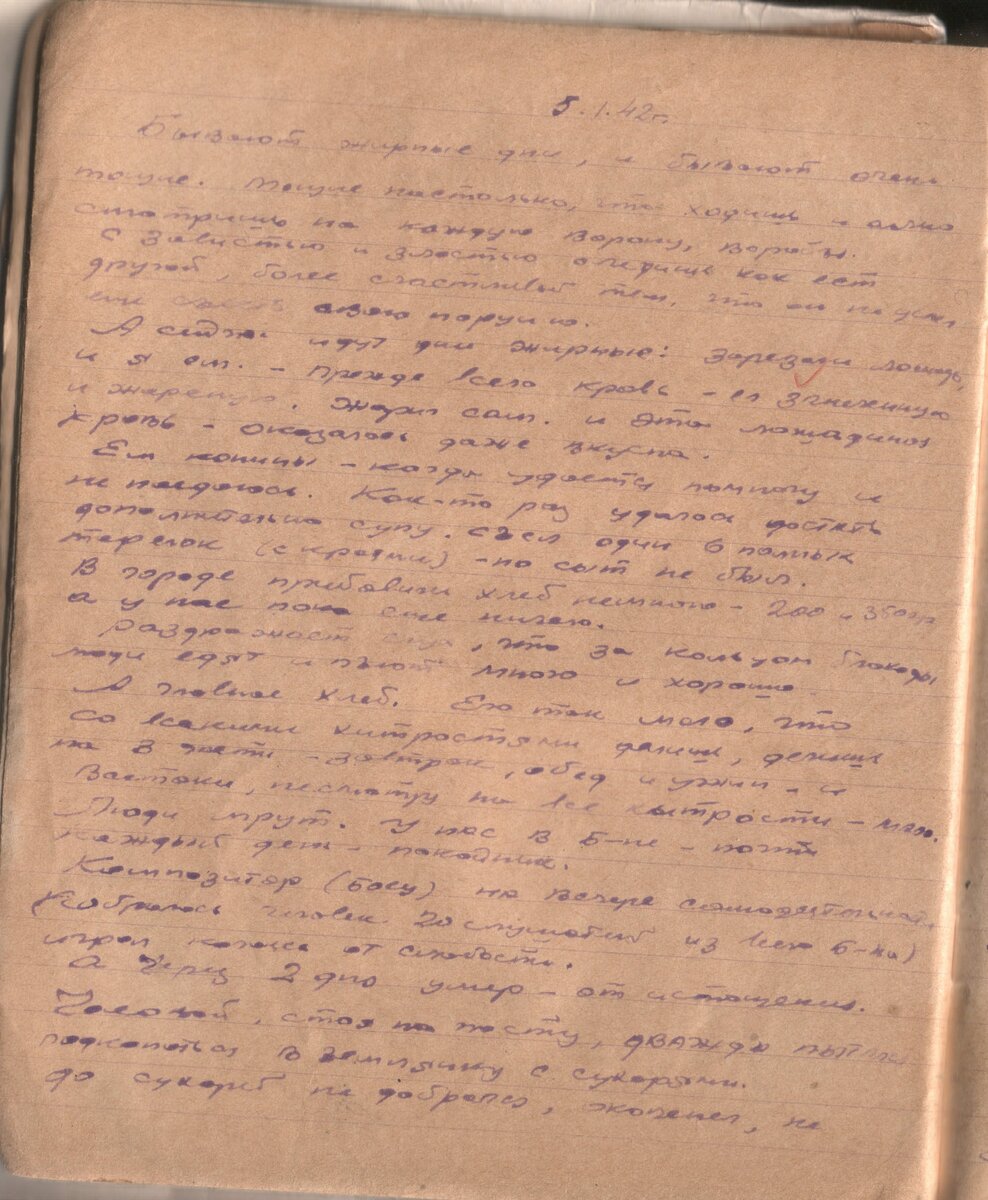 5.1.42 г.
Бывают жирные дни, и бывают очень
тощие. Тощие настолько, что ходишь и
смотришь на каждую ворону, воробья.
С завистью и злостью следишь как ест
другой, более счастливый тем, что он не успел
еще съесть свою порцию.
А сейчас идут дни жирные: зарезали лошадь,
и я ем. - Прежде всего кровь - ел
и жареную. Жарил сам. и эта лошадиная
кровь - оказалась даже вкусна.
Ем конины - когда удается помногу и
не наедаюсь. Как-то раз удалось достать
дополнительно супу. Съел один 6 полных
тарелок (с краями) - но сыт не был.
В городе прибавили хлеб немного - 200 и 350 гр
а у нас пока еще ничего.
Раздражает еще, что за кольцом блокады
люди едят и пьют много и хорошо.
А главное хлеб. Его так мало, что
со всякими хитростями делишь, делишь
на 3 части - завтрак, обед и ужин - и
все-таки, несмотря на все хитрости - мало.
Люди мрут. У нас в б-не - почти
каждый день - покойник.
Композитор (боец) на вечере самодеятельности
(собралось человек 20 слушателей из всего б-на)
играл качаясь от слабости.
А через 2 дня умер - от истощения.
Часовой, стоя на посту, дважды пытался
подкопаться в землянку с сухарями.
до сухарей не добрался, окоченел, не